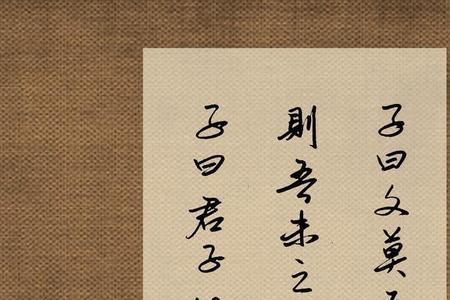 子曰文莫
則吾未之
子曰君子